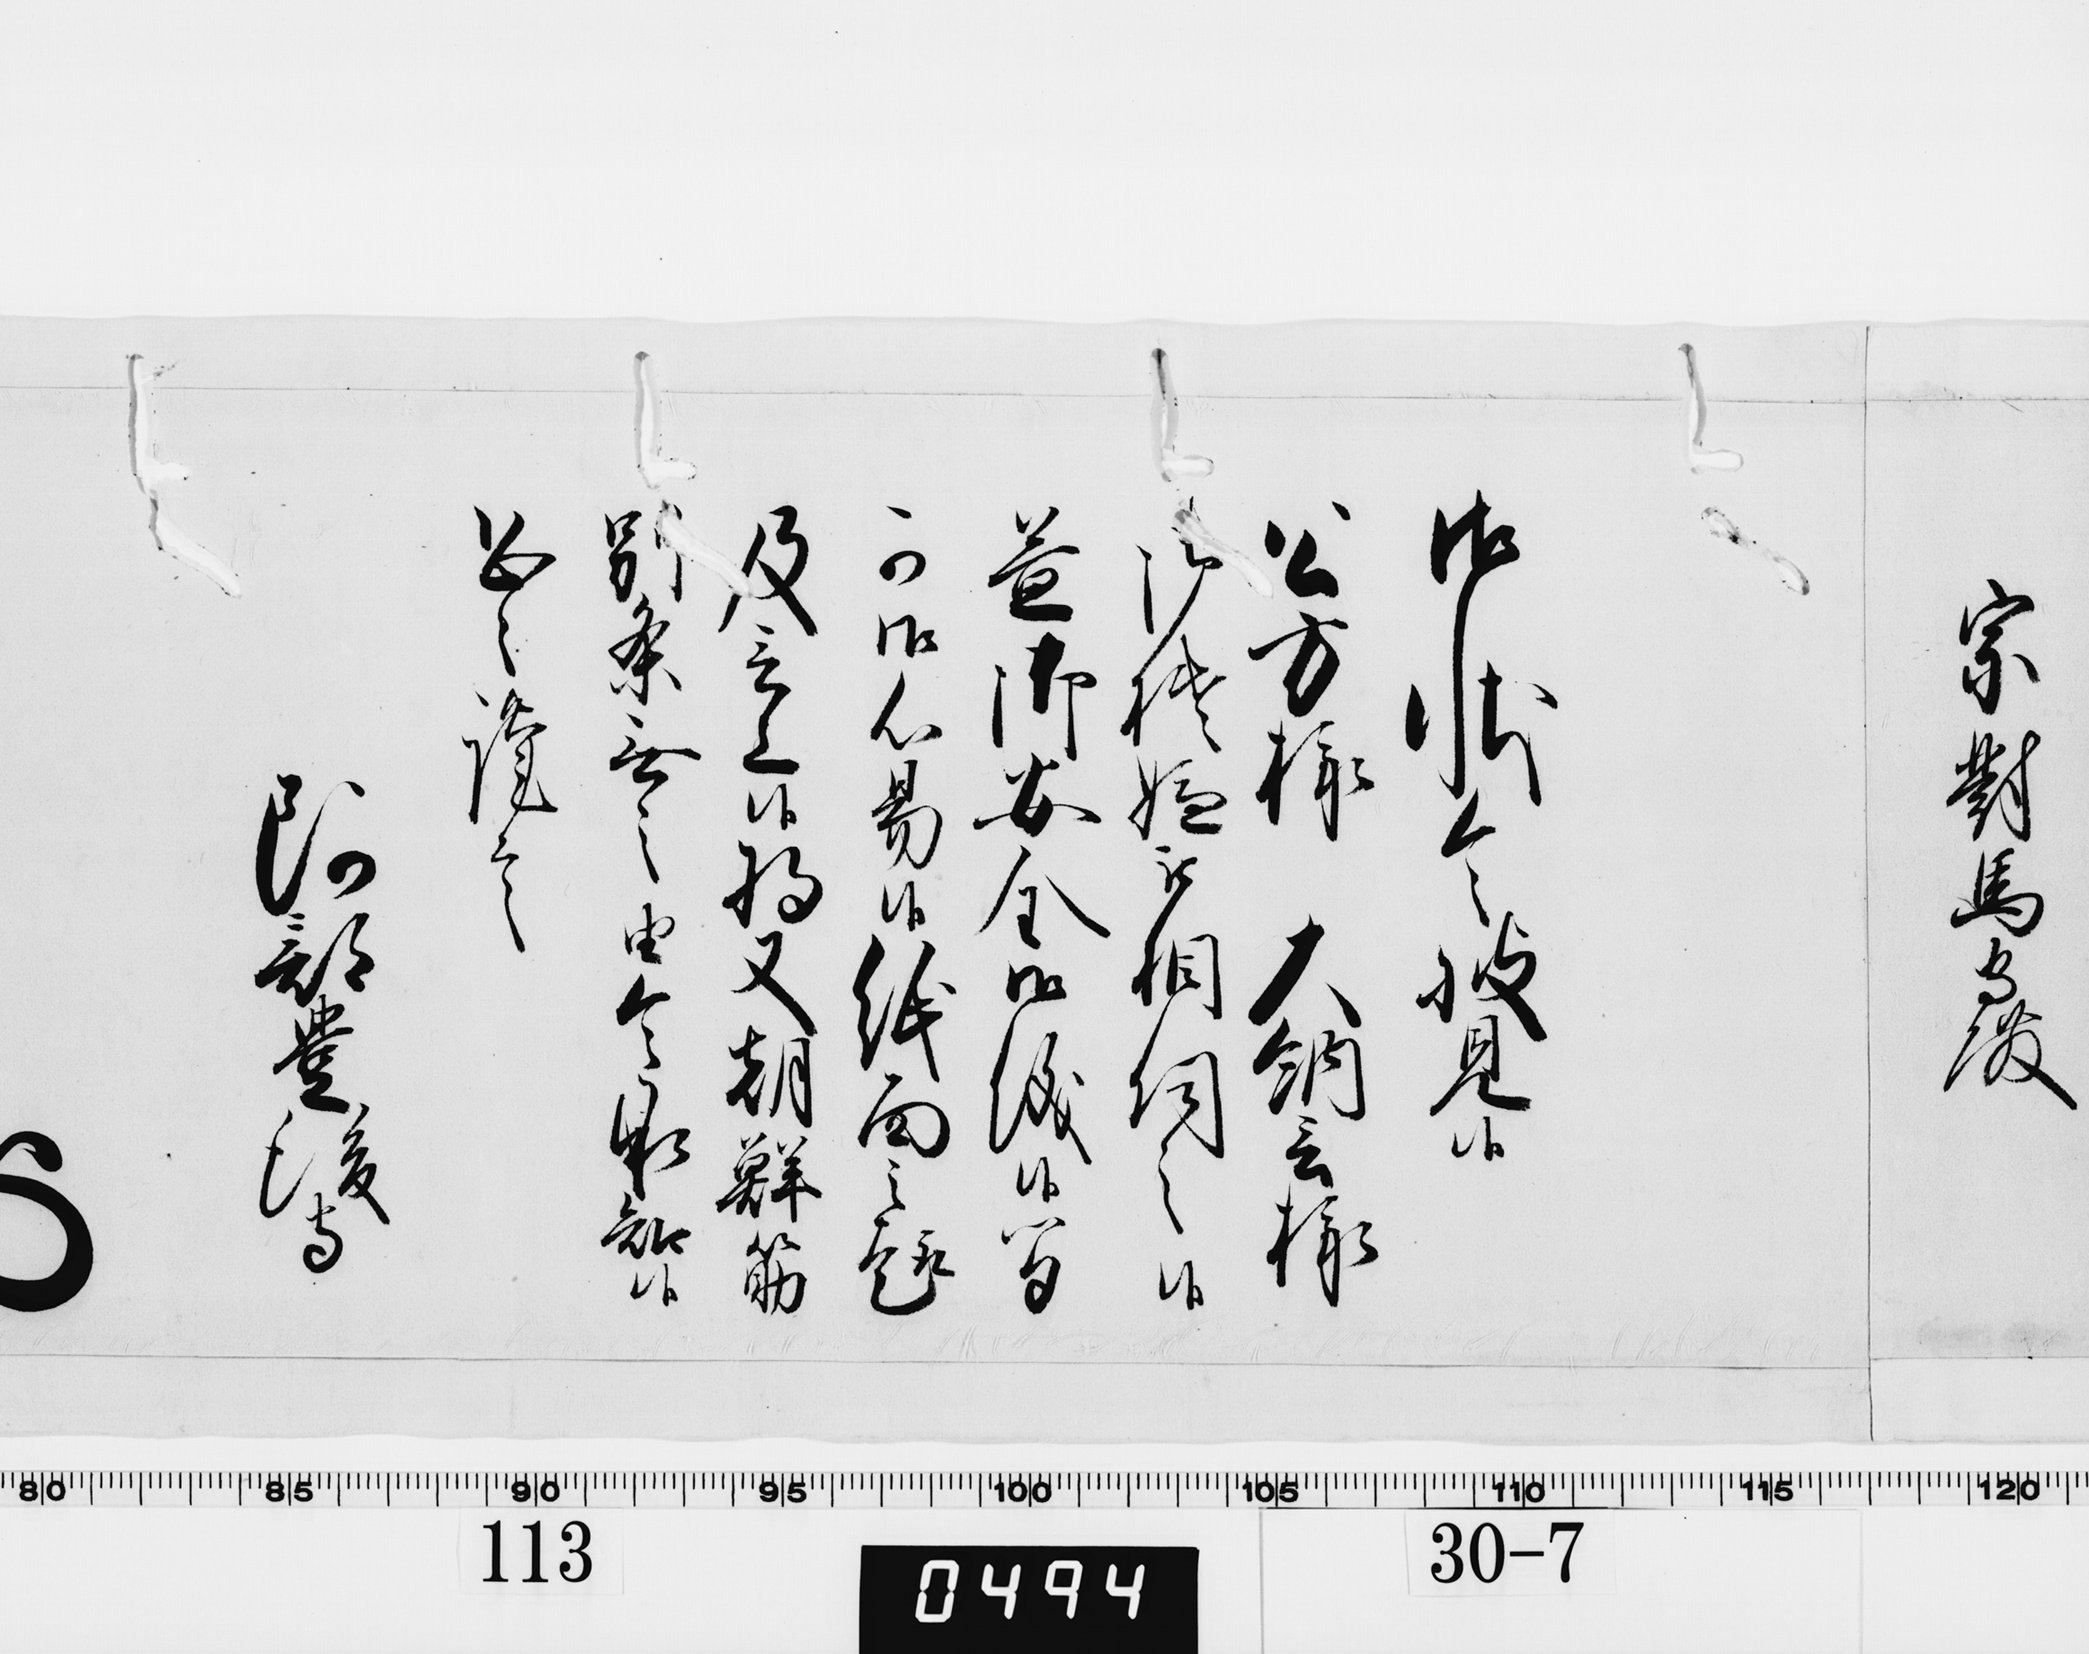 宗對馬守殿
御状令披見候
公方様　大納言様
御機嫌被相伺之候
益御安全御儀候間
可御心易候紙面之趣
及言上候将又朝鮮筋
別条無之由令承知候
恐々謹言
阿部豊後守
80 85 90 95 100 105 110 115 120
113
30-7
0494